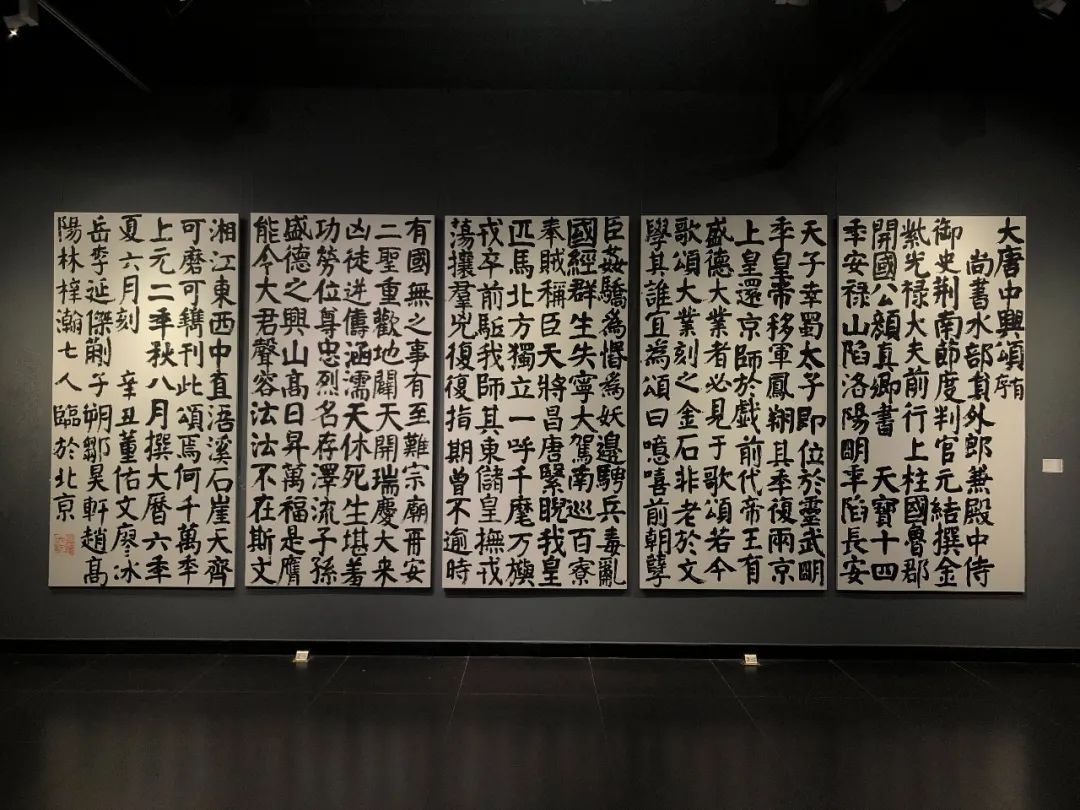 大唐中興頌有序
尚書水部員外郎兼殿中侍
御史荆南節度判官元結撰金
紫光禄大夫前行上柱國魯郡
開國公顔真卿書 天寶十四
秊安禄山陷洛陽明秊陷長安
天子幸蜀太子即位於靈武明
秊皇帝移軍鳳翔其秊復兩京
上皇還京師於戲前代帝王有
盛德大業者必見于歌頌若今
歌頌大業刻之金石非老於文
學其誰宜為頌曰噫嘻前朝孽
臣姦驕為惛為妖邊騁兵毒亂
國經群生失寧大駕南巡百寮
奉賊稱臣天將昌唐緊睨我皇
匹馬北方獨立一呼千麾万旟
戎卒前駈我師其東儲皇撫戎
蕩攘羣兇復復指期曾不逾時
有國無之事有至難宗廟再安
二聖重歡地闢天開瑞慶大来
凶徒逆儔涵濡天休死生堪羞
功勞位尊忠烈名存澤流子孫
盛德之興山高日昇萬福是膺
能令大君聲容法法不在斯文
湘江東西中直浯溪石崖天齊
可磨可鐫刊此頌焉何千萬秊
上元二秊秋八月撰大曆六秊
夏六月刻 辛丑董佑文廖冰
岳李延傑蒯子朔鄒昊軒趙髙
陽林梓瀚七人臨於北京